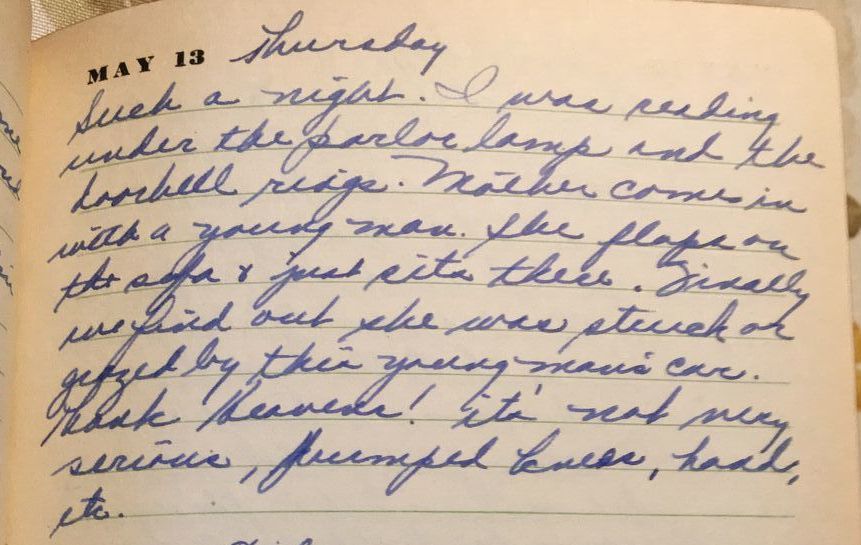 MAY 13 Thursday
Such a night. I was reading
under the parlor lamp and the
doorbell rings. Mother comes in
with a young man. She flops on
the sofa & just sits there. Finally
we find out she was struck or
grazed by this young man's car.
Thank Heavens! it's not very
serious, bumped knees, head,
etc.